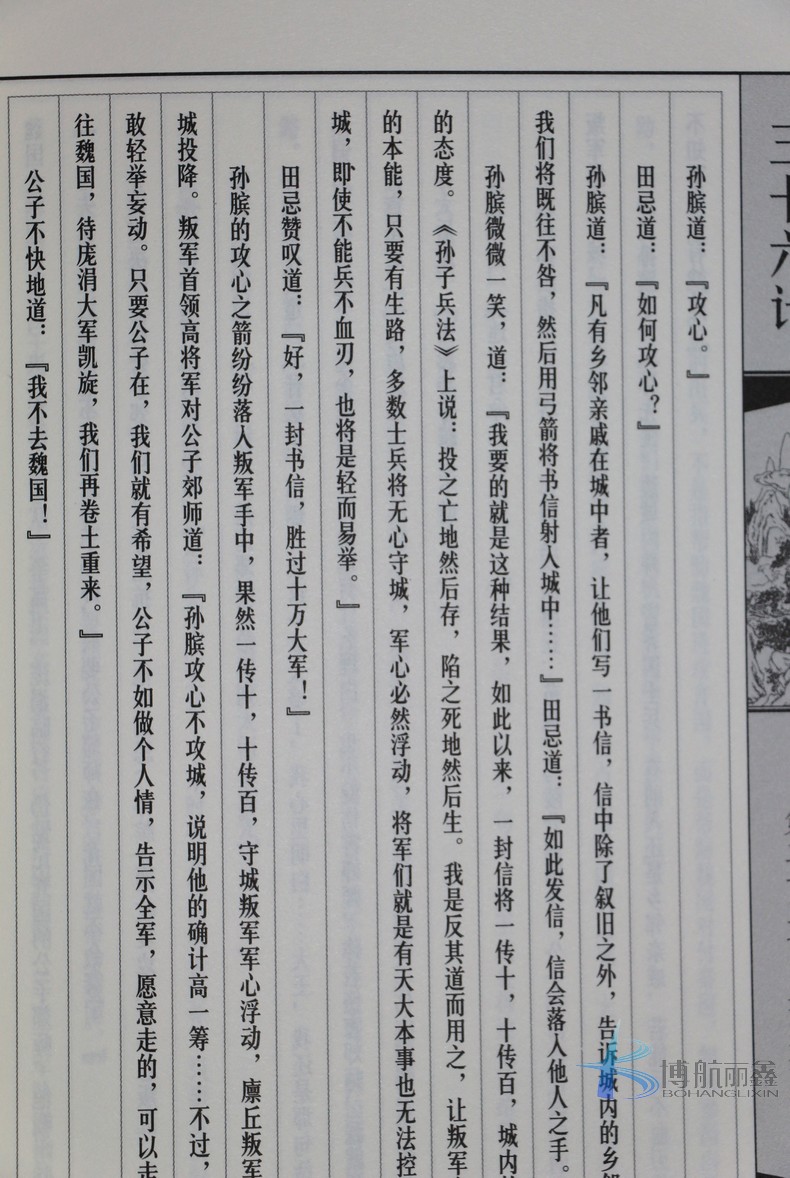 三十六计
孙膑道：『攻心。』
田忌道：『如何攻心？』
孙膑道：『凡有乡邻亲戚在城中者，让他们写一书信，信中除了叙旧之外，告诉城内的乡邻
我们将既往不咎，然后用弓箭将书信射入城中……』田忌道：『如此发信，信会落入他人之手。
孙膑微微一笑，道：『我要的就是这种结果，如此以来，一封信将一传十，十传百，城内的
的态度。《孙子兵法》上说：投之亡地然后存，陷之死地然后生。我是反其道而用之，让叛军
的本能，只要有生路，多数士兵将无心守城，军心必然浮动，将军们就是有天大本事也无法控
城，即使不能兵不血刃，也将是轻而易举。』
田忌赞叹道：『好，一封书信，胜过十万大军！』
孙膑的攻心之箭纷纷落入叛军手中，果然一传十，十传百，守城叛军军心浮动，廪丘叛军
城投降。叛军首领高将军对公子郊师道：『孙膑攻心不攻城，说明他的确计高一筹……不过，
敢轻举妄动。只要公子在，我们就有希望，公子不如做个人情，告示全军，愿意走的，可以走
往魏国，待庞涓大军凯旋，我们再卷土重来。』
公子不快地道：『我不去魏国！』
博航丽鑫
BOHANGLIXIN